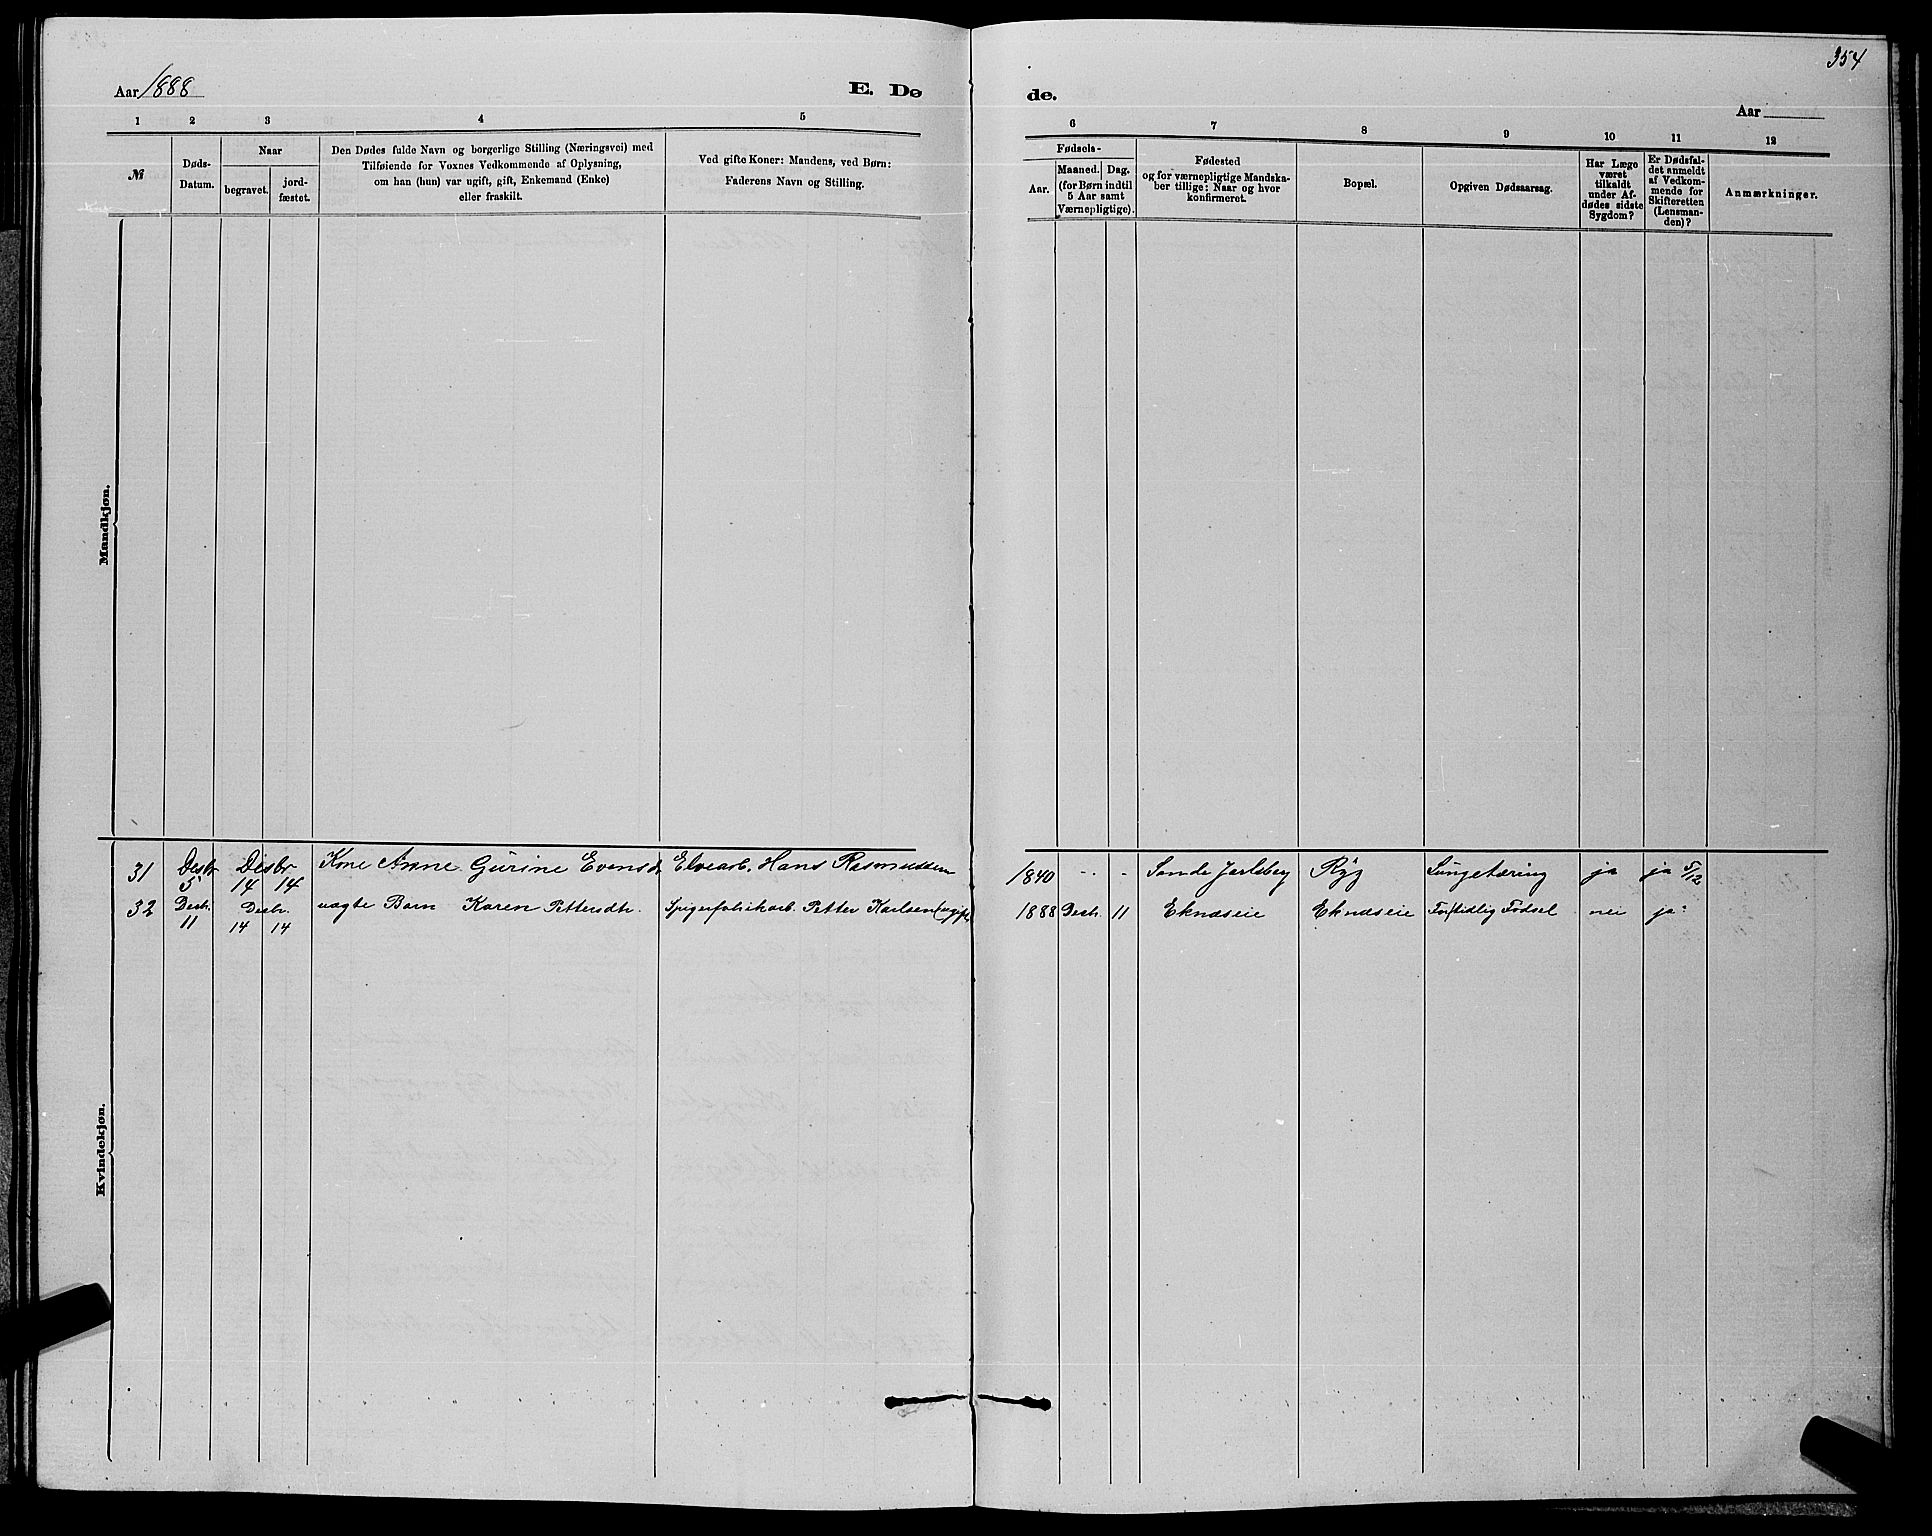 354
Aar 1888
E. Dø
de.
Aar
1 2 3 4 5
6 7 8 9 10 11 12
№
Døds-
Datum.
Naar
begravet.
jord-
fæstet.
Den Dødes fulde Navn og borgerlige Stilling (Næringsvei) med
Tilføiende for Voxnes Vedkommende af Oplysning,
om han (hun) var ugift, gift, Enkemand (Enke)
eller fraskilt.
Ved gifte Koner: Mandens, ved Børn:
Faderens Navn og Stilling.
Fødsels-
Aar.
Maaned. Dag.
(for Børn indtil
5 Aar samt
Værnepligtige).
Fødested
og for værnepligtige Mandska-
ber tillige: Naar og hvor
konfirmeret.
Bopæl.
Opgiven Dødsaarsag.
Har Læge
været
tilkaldt
under Af-
dødes sidste
Sygdom?
Er Dødsfal-
det anmeldt
af Vedkom-
mende for
Skifteretten
(Lensman-
den)?
Anmærkninger.
Mandkjøn.
Kvindekjøn.
31 Desbr 5 Desbr 14 14 Kone Anne Gurine Evensd. Elvearb. Hans Rasmussen 1840 - - Sande Jarlsberg Ryg Lungetæring ja ja 5/12
32 Desbr. 11 Desbr. 14 14 uægte Barn Karen Pettersdtr. Spigerfabrikarb. Petter Karlsen (ugift) 1888 Desb. 11 Eknæseie Eknæseie Fortidlig Fødsel nei ja